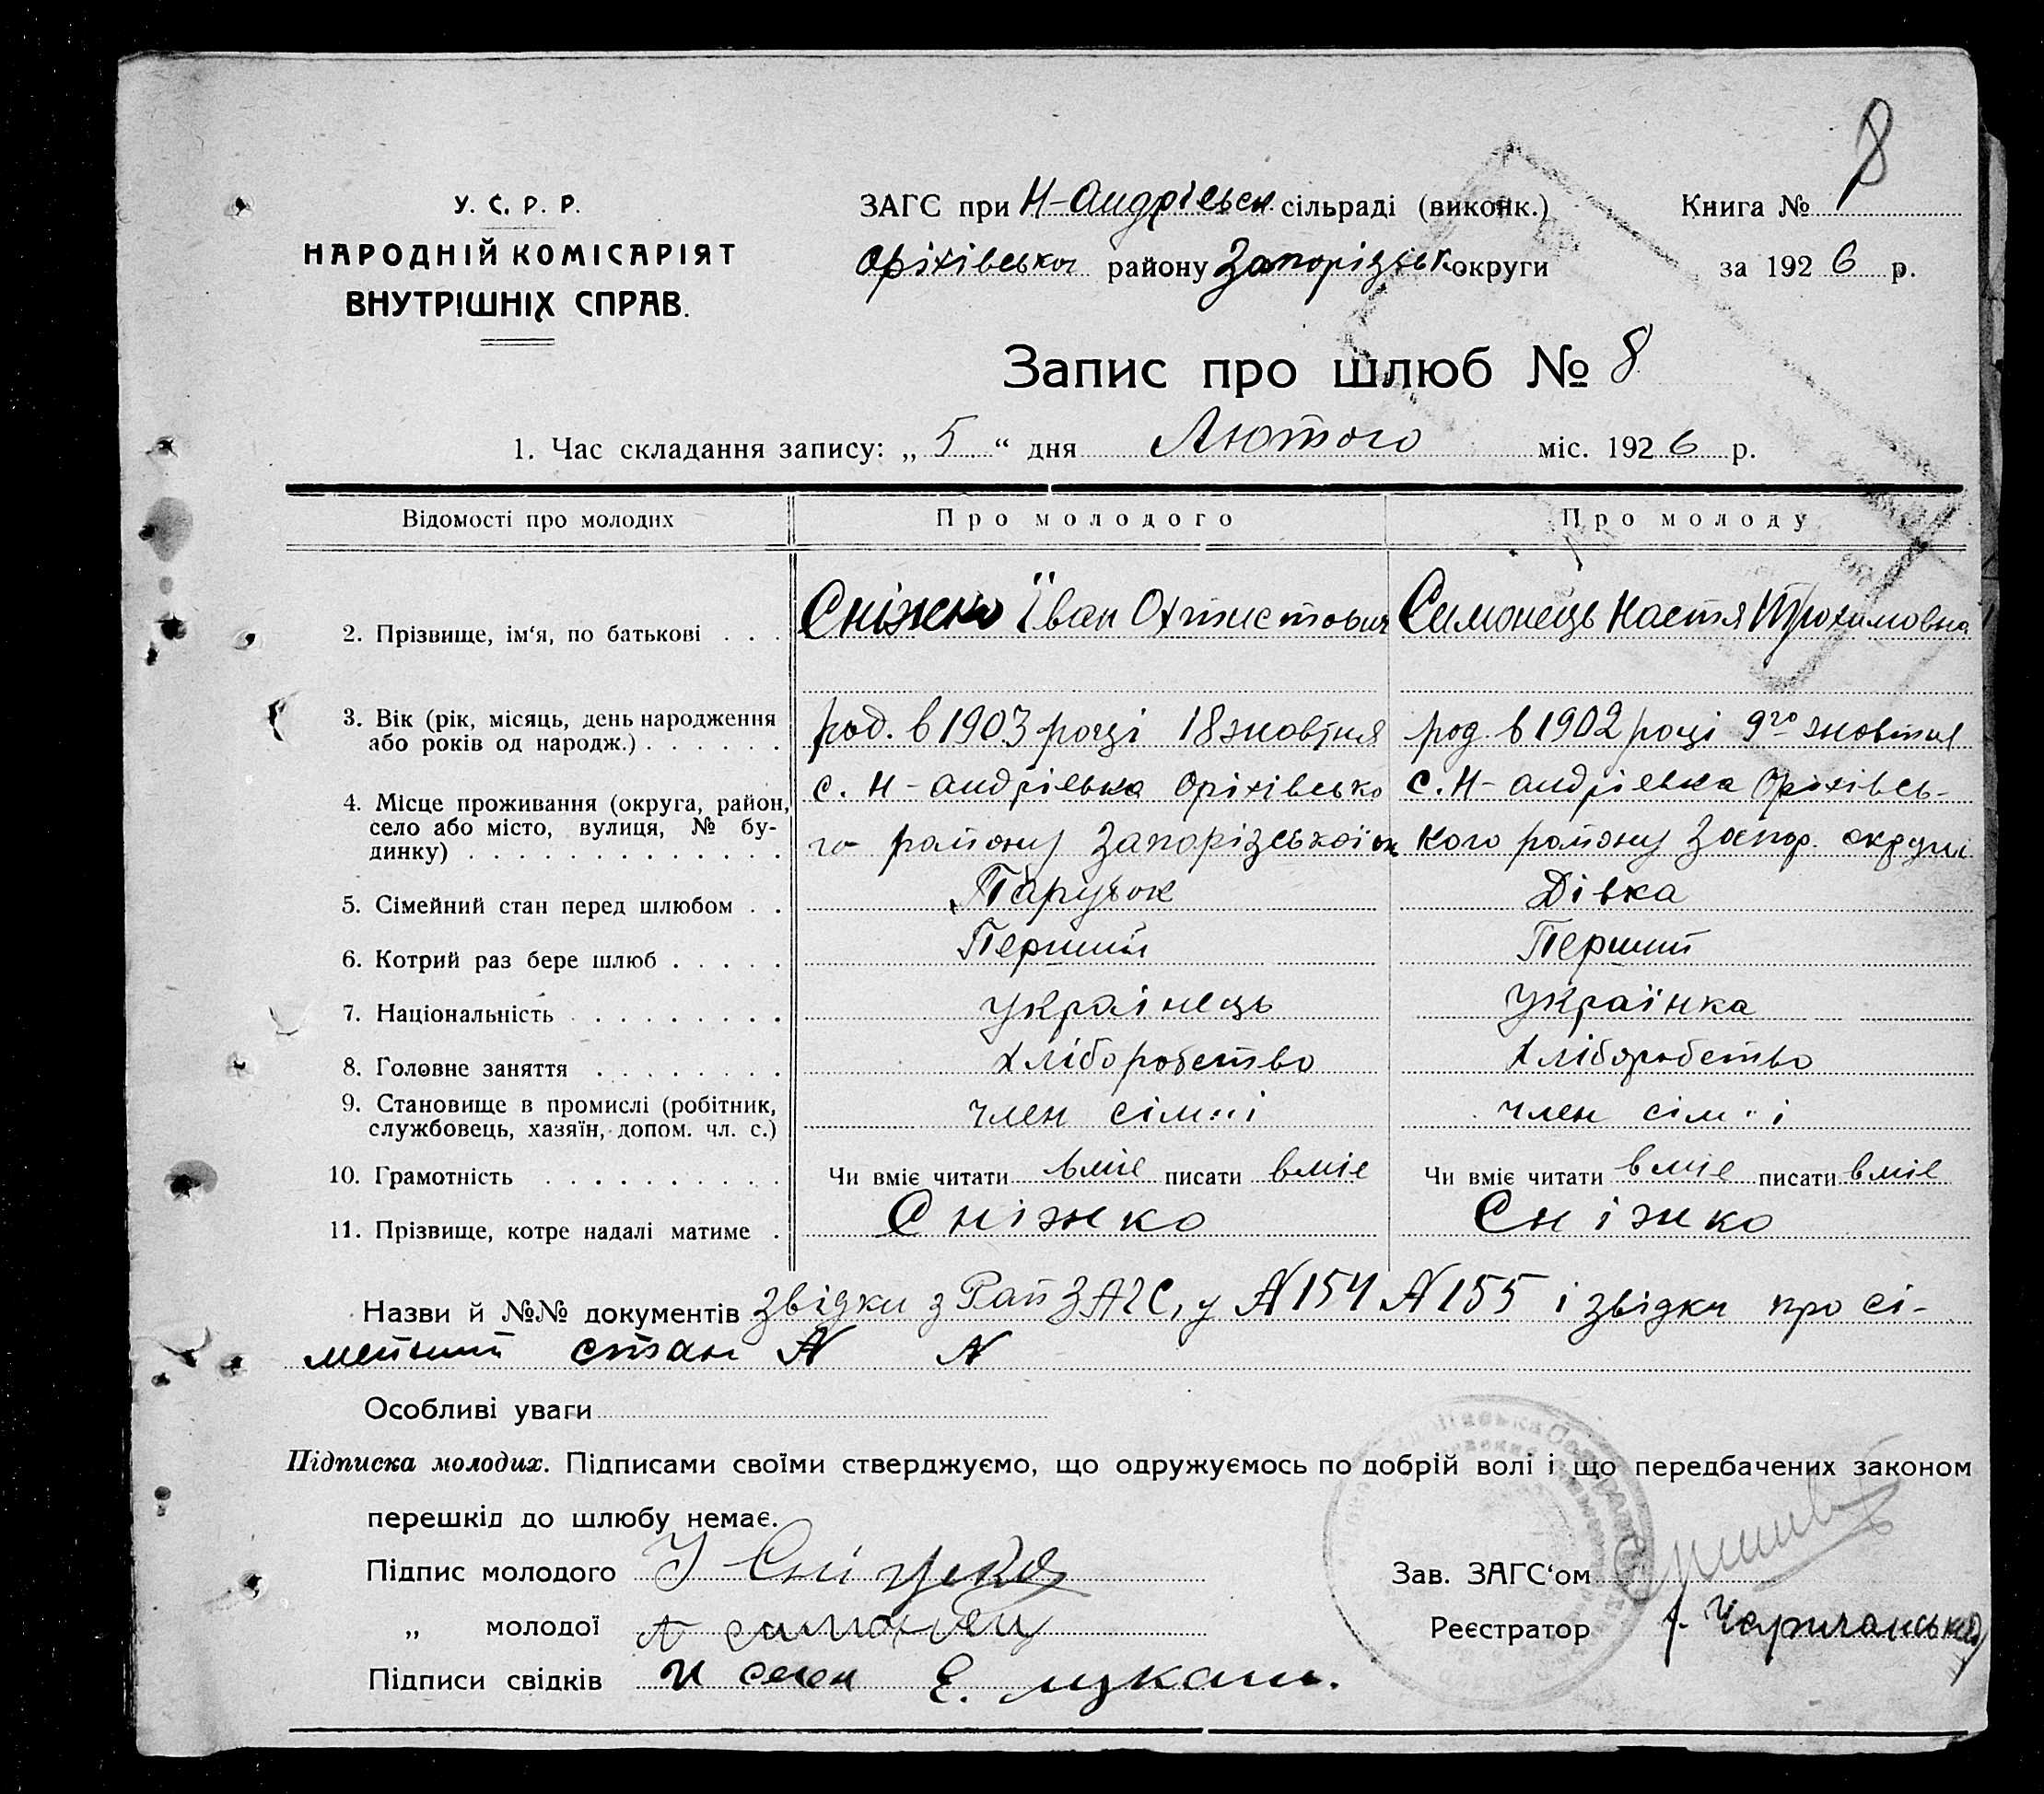 8
У. С. Р. Р.
НАРОДНІЙ КОМІСАРІЯТ
ВНУТРІШНІХ СПРАВ.
ЗАГС при Н-Андріевск сільраді (виконк.)
Оріхівського району Запорізьк. округи
Книга №
за 1926 р.
Запис про шлюб № 8
1. Час складання запису: „ 5 “ дня Лютого міс. 1926 р.
Відомості про молодих Про молодого Про молоду
2. Прізвище, ім‘я, по батькові . . . Сніжко Їван Симонець Настя Трохимовна
3. Вік (рік, місяць, день народження род. в 1903 році 18 жовтня род. в 1902 році 9го жовтня
або років од народж.) . . . . . .
4. Місце проживання (округа, район, с. Н-андріевка Оріхівсько с. Н-андріевка Оріхівсь-
село або місто, вулиця, № бу- го району Запорізської ок кого району Запор. округи
динку) . . . . . . . . . . . . .
5. Сімейний стан перед шлюбом . . Парубок Дівка
6. Котрий раз бере шлюб . . . . . Перший Перший
7. Національність . . . . . . . . . українець українка
8. Головне заняття . . . . . . . . хліборобство хліборобство
9. Становище в промислі (робітник, член сімиі член сімиі
службовець, хазяїн, допом. чл. с.)
10. Грамотність . . . . . . . . . . Чи вміє читати вміє писати вміє Чи вміє читати вміє писати вміє
11. Прізвище, котре надалі матиме . Сніжко Сніжко
Назви й №№ документів звідки з Рай ЗАГС,у №154 №155 і звідки про сі-
мейний стан № №
Особливі уваги
Підписка молодих. Підписами своїми стверджуємо, що одружуємось по добрій волі і що передбачених законом
перешкід до шлюбу немає.
Підпис молодого І Сніжко
„ молодої Н симонец
Підписи свідків Е. лукаш.
Зав. ЗАГС‘ом
Реєстратор